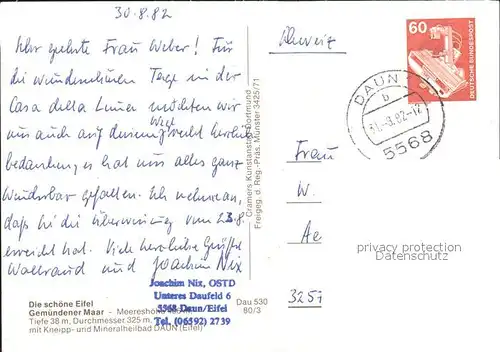 30.8.82
Sehr geehrte Frau Weber! Für
die wunderschönen Tage in der
Casa della Luna möchten wir
uns auch auf diesem Weg recht herzlich
bedanken, es hat uns alles ganz
wunderbar gefallen. Ich nehme an,
daß Sie die Überweisung vom 23.8.
erreicht hat. Viele herzliche Grüße
Waltraud und Joachim Nix
Joachim Nix, OSTD
Unteres Daufeld 6
5568 Daun/Eifel
Tel. (06592) 2739
Die schöne Eifel
Gemündener Maar - Meereshöhe
Tiefe 38 m, Durchmesser 325 m
mit Kneipp- und Mineralheilbad DAUN (Eifel)
Dau 530
80/3
Cramers Kunstanstalt Dortmund
Freigeg. d. Reg.-Präs. Münster 3425/71
Schweiz
60
DEUTSCHE BUNDESPOST
DAUN
b
-8.82-12
5568
Frau
W.
Ae
3251
privacy protection
Datenschutz